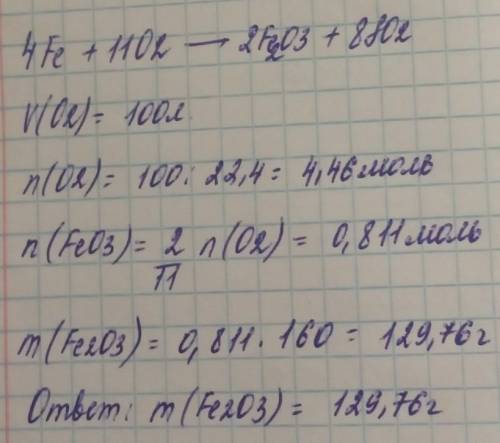 4Fe + 11O2 → 2Fe2O3 + 8SO2
V(O2) = 100л
n(O2) = 100 : 22,4 = 4,46 моль
n(FeO3) = 2/11 n(O2) = 0,811 моль
m(Fe2O3) = 0,811 · 160 = 129,76г
Ответ: m(Fe2O3) = 129,76г